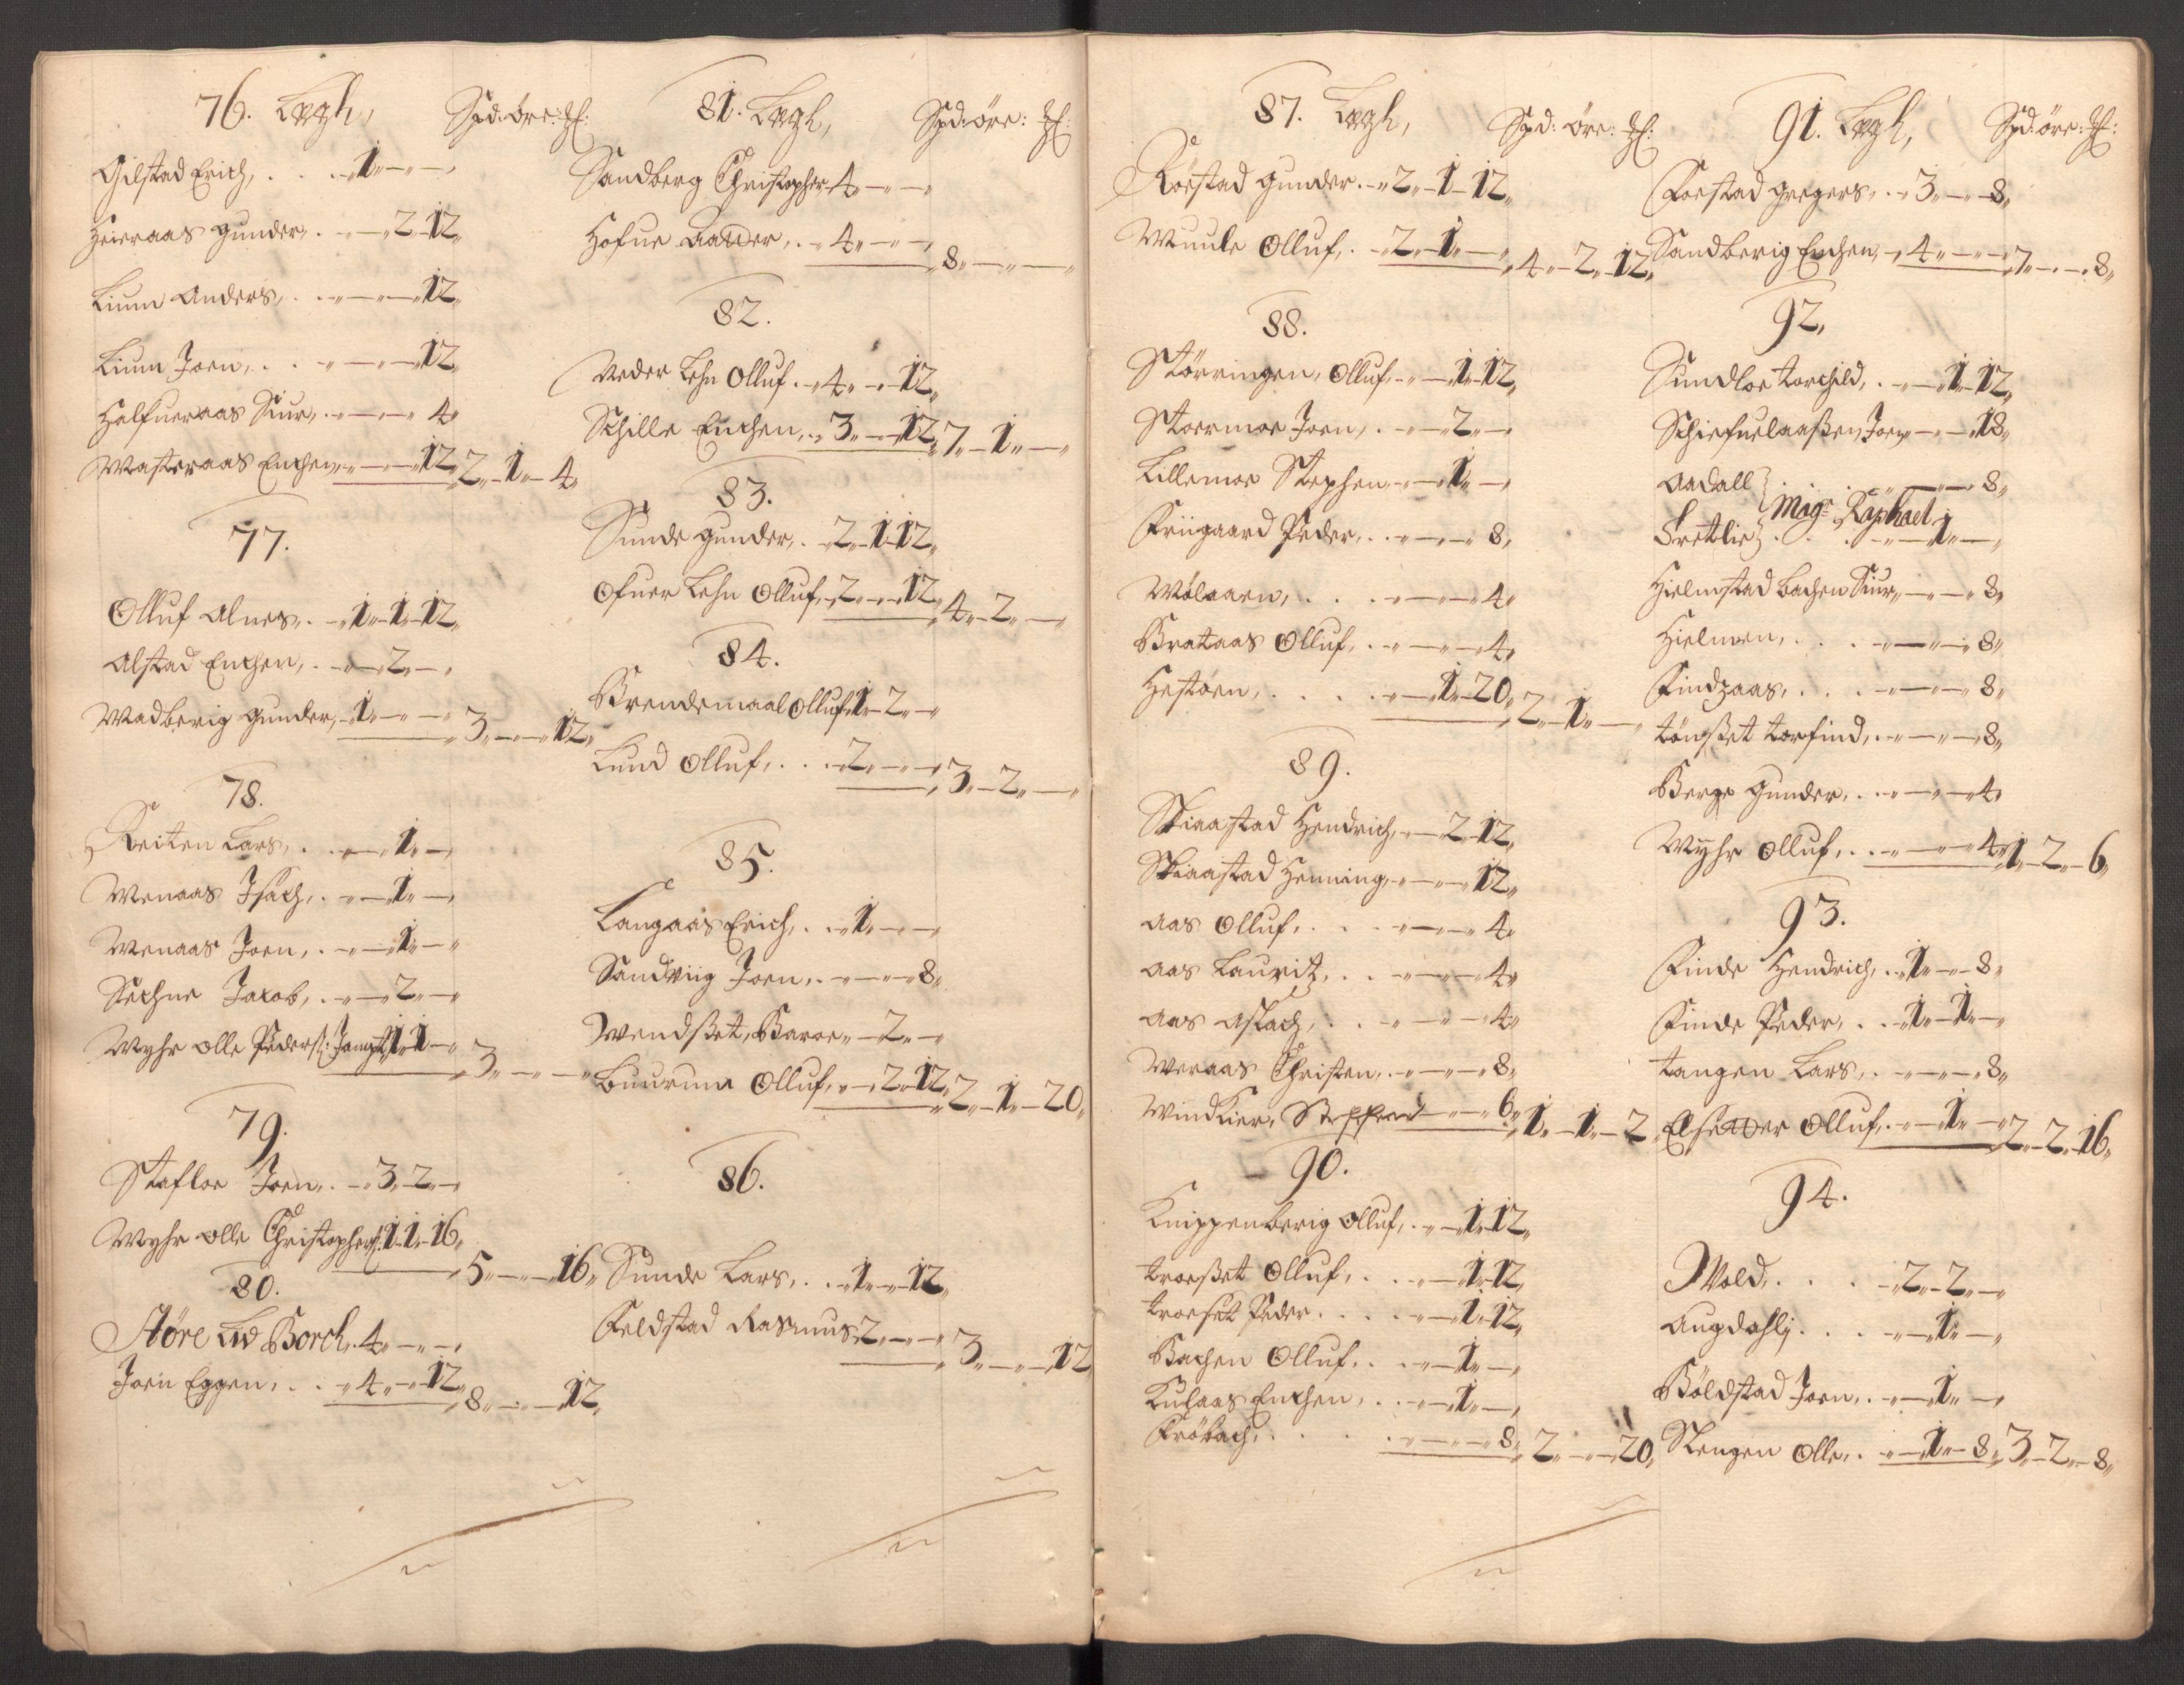 76. Lægh, Spd: öre: ℔:
Gilstad Erich, . . . 1 " — " —
Heieraas Gunder, . " — 2 - 12 "
Lium Anders, . . " — " — 12 "
Lium Joen, . . . " — " — 12 "
Halfueraas Siur, . " — " — 4 "
Wasteraas Enchen, " — " — 12 " 2 " - 1 " - 4 "
77.
Olluf Alnes, . " 1 " - 1 " - 12 "
Alstad Enchen, . " — 2 " —
Wadberig Gunder, " 1 " — " — " 3 " — " — 12 "
78.
Reiten Lars, . . " — 1 " —
Wenaas Isach, . " — 1 " —
Wenaas Joen, . " — 1 " —
Sechne Jacob, . " — 2 " —
Wyhr Olle Peders: Jempt, 1 " 1 " — " 3 " — " —
79.
Stafloe Joen, . " 3 " - 2 " —
Wyhr Olle Christophers: 1 " - 1 " - 16 "
" 5 " — " — 16 "
80.
Støre Lid Borch . 4 " — " —
Joen Eggen, . . " 4 " — 12 " 8 " — " — 12 "
81. Lægh, Spd: öre: ℔:
Sandberg Christopher 4 " — " —
Hofue Aatter, . " 4 " — " — " 8 " — " —
82.
Neder Lehn Olluf . " 4 " — 12 "
Schille Enchen, . " 3 " — 12 " 7 " - 1 " —
83.
Sunde Gunder, . " 2 " - 1 - 12 "
Ofuer Lehn Olluf, " 2 " — 12 " 4 " - 2 " —
84.
Brendemaal Olluf 1 " - 2 " —
Lund Olluf, . . . " 2 " — " — " 3 " - 2 " —
85.
Langaas Erich, . . " 1 " — " —
Sandviig Joen, . " — " — 8 "
Wendsset, Baroe " — 2 " —
Buuruna Olluf, " — 2 " 12 " 2 " - 1 " - 20 "
86.
Sunde Lars, . . " 1 " — 12 "
Feldstad Rasmus 2 " — " — " 3 " — " — 12
87. Lægh, Spd: öre: ℔:
Roestad Gunder . " 2 " - 1 - 12 "
Wuule Olluf, . " 2 " - 1 " — " 4 " - 2 " - 12 "
88.
Störringen, Olluf, " — 1 " - 12 "
Stoermoe Joen, . " — 2 " —
Lillemoe Stephen " — 1 " —
Friigaard Peder, . . " — " — 8 "
Wolaaen, . . . " — " — 4 "
Brataas Olluf, . " — " — 4 "
Hestøen, . . . . " — 1 - 20 " 2 " - 1 " —
89.
Skiaastad Hendrich, " — 2 - 12 "
Skiaastad Henning, " — " — 12 "
Aas Olluf, . . . " — " — 4 "
Aas Lauritz, . . " — " — 4 "
Aas Aslach, . . " — " — 4 "
Weraas Christen, . " — " — 8 "
WindKier, Steffen " — " — 6 " 1 " - 1 " - 2 "
90.
Knippenberig Olluf, . " — 1 " 12 "
Troesset Olluf, . . " — 1 " 12 "
Troeset Peder . . . . " — 1 " 12 "
Bachen Olluf, . . " — 1 " —
Kulaas Enchen, . . " — 1 " —
Fröbach, . . . . " — " — 8 " 2 " — " — 20 "
91. Lægh, Spd: öre: ℔:
Foestad Gregers, . " 3 " — 8 "
Sandberig Enchen, " 4 " — " — " 7 " — " — 8 "
92,
Sundloe Torchild, . " — 1 " - 12 "
Schiefuelaassen, Joen " — " — 18 "
Aadall } . . " — " — 8 "
Magr Raphael
Brettlie } . . . " — 1 " —
Hielmstad bachen Siur, " — " — 8 "
Hielmen, . . . " — " — 8 "
Findzaas, . . . " — " — 8 "
Töngsset Torfind, . " — " — 8 "
Berge Gunder, . . " — " — 4 "
Wyhr Olluf, . . " — " — 4 " 1 " - 2 " - 6 "
93.
Finde Hendrich, . " 1 " — 8 "
Finde Peder, . . " 1 " - 1 " —
Tangen Lars, . " — " — 8 "
Elsetter Olluf, . " — 1 " — " 2 " - 2 " 16 "
94.
Wold, . . . . " 2 " - 2 " —
Augdahl, . . . " — 1 " —
Böldstad Joen, . " — 1 " —
Slengen Olle, . " — 1 " - 8 " 3 " - 2 " - 8 "